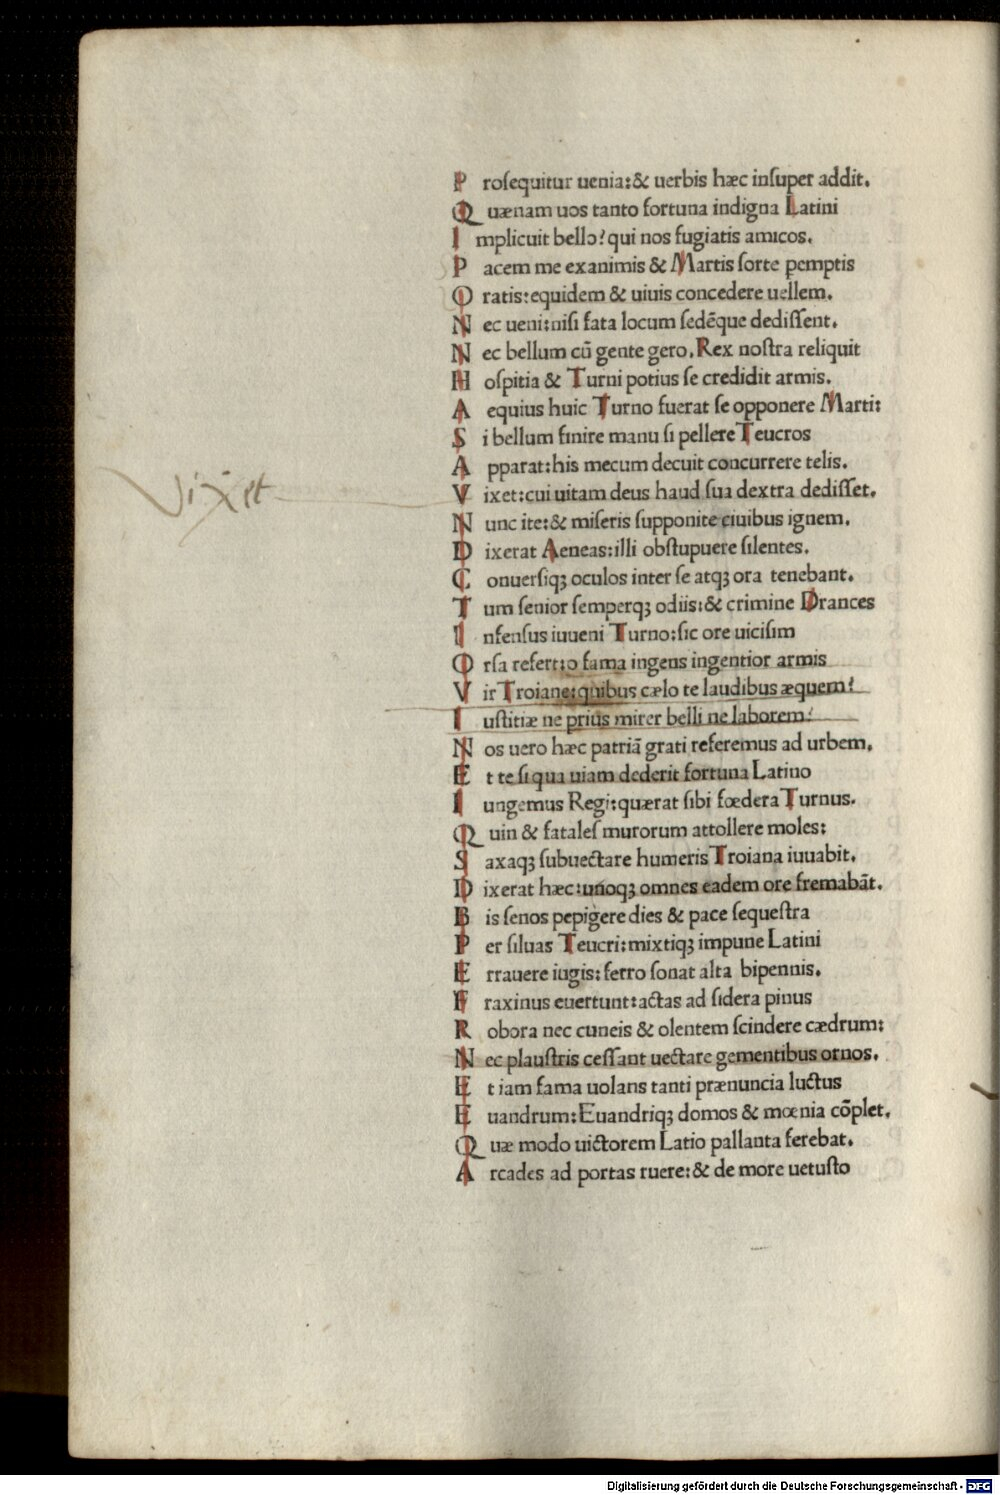 P roſequitur uenia:& uerbis hæc inſuper addit.
Q uænam uos tanto fortuna indigna Latini
I mplicuit bello? qui nos fugiatis amicos.
P acem me exanimis & Martis ſorte ꝑemptis
O ratis:equidem & uiuis concedere uellem.
N ec ueni:niſi fata locum ſedēque dediſſent.
N ec bellum cū gente gero. Rex noſtra reliquit
H oſpitia & Turni potius ſe credidit armis.
A equius huic Turno fuerat ſe opponere Marti:
S i bellum finire manu ſi pellere Teucros
A pparat:his mecum decuit concurrere telis.
Vixet
V ixet:cui uitam deus haud ſua dextra dediſſet.
N unc ite:& miſeris ſupponite ciuibus ignem.
D ixerat Aeneas:illi obſtupuere ſilentes.
C onuerſiqꝫ oculos inter ſe atqꝫ ora tenebant.
T um ſenior ſemperqꝫ odiis:& crimine Drances
I nfenſus iuueni Turno:ſic ore uiciſim
O rſa refert:o fama ingens ingentior armis
V ir Troiane:quibus cælo te laudibus æquem?
I uſtitiæ ne prius mirer belli ne laborem?
N os uero hæc patriā grati referemus ad urbem.
E t te ſi qua uiam dederit fortuna Latino
I ungemus Regi:quærat ſibi fœdera Turnus.
Q uin & fataleſ murorum attollere moles:
S axaqꝫ ſubuectare humeris Troiana iuuabit.
D ixerat hæc:unoqꝫ omnes eadem ore fremabāt.
B is ſenos pepigere dies & pace ſequeſtra
P er ſiluas Teucri:mixtiqꝫ impune Latini
E rrauere iugis:ferro ſonat alta bipennis.
F raxinus euertunt:actas ad ſidera pinus
R obora nec cuneis & olentem ſcindere cædrum:
N ec plauſtris ceſſant uectare gementibus ornos.
E t iam fama uolans tanti prænuncia luctus
E uandrum:Euandriqꝫ domos & mœnia cōplet.
Q uæ modo uictorem Latio pallanta ferebat.
A rcades ad portas ruere:& de more uetuſto
Digitalisierung gefördert durch die Deutsche Forschungsgemeinschaft - DFG